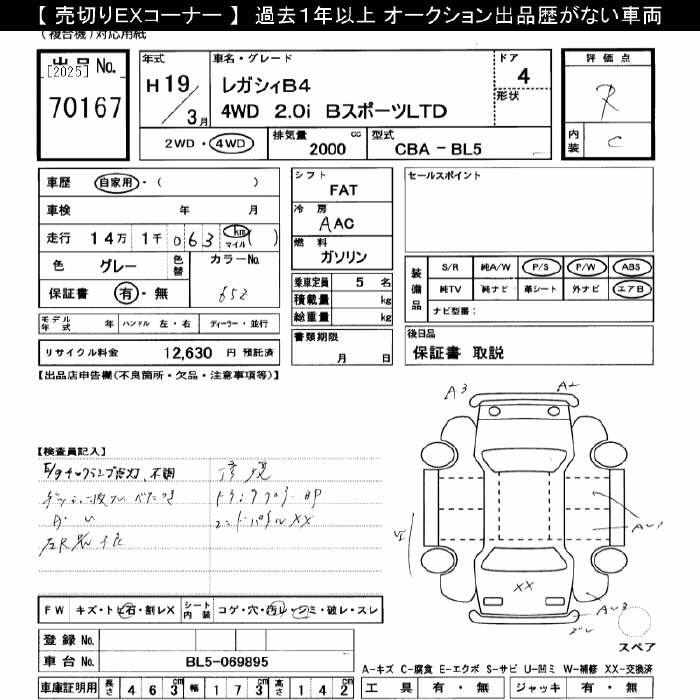 【 売切りEXコーナー 】 過去1年以上 オークション出品歴がない車両
(複合機)対応用紙
出品No.
[2025]
70167
年式
H 19／3月
車名・グレード
レガシィB4
4WD 2.0i BスポーツLTD
ドア
4
形状
2WD・4WD
排気量
2000 cc
型式
CBA - BL5
評価点
R
内装
C
車歴 自家用・( )
車検 年 月
走行 14万 1千 063 km マイル ( )
色 グレー 色替 カラーNo.
保証書 有・無 652
モデル年式 年 ハンドル 左・右 ディーラー・並行
リサイクル料金 12,630 円 預託済
シフト
FAT
冷房
AAC
燃料
ガソリン
乗車定員 5 名
積載量 kg
総重量 kg
書類期限
月 日
セールスポイント
装備品
S/R 純A/W P/S P/W ABS
純TV 純ナビ 革シート 外ナビ エアB
ナビ型番：
後日品
保証書 取説
【出品店申告欄(不良箇所・欠品・注意事項等)】
【検査員記入】
E/gチェックランプ点灯、不調
修現
トランクフロアー凹
エンドパネルXX
A3
A2
XX
FW キズ・トビ石・割レX シート内装 コゲ・穴・汚レ・シミ・破レ・スレ
登録No.
車台No. BL5-069895
車庫証明用 長さ 463cm 幅 173cm 高さ 142cm
スペア
A-キズ C-腐食 E-エクボ S-サビ U-凹ミ W-補修 XX-交換済
工具 有・無 ジャッキ 有・無